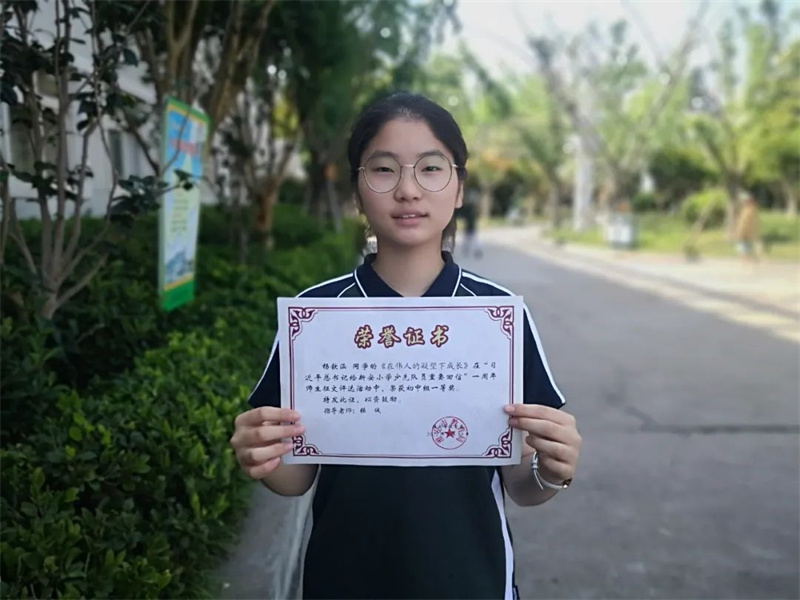 荣誉证书
杨钦涵 同学的《在伟人的凝望下成长》在“习
近平总书记给新安小学少先队员重要回信”一周年
师生征文评选活动中，荣获初中组一等奖。
特发此证，以资鼓励。
指导老师：